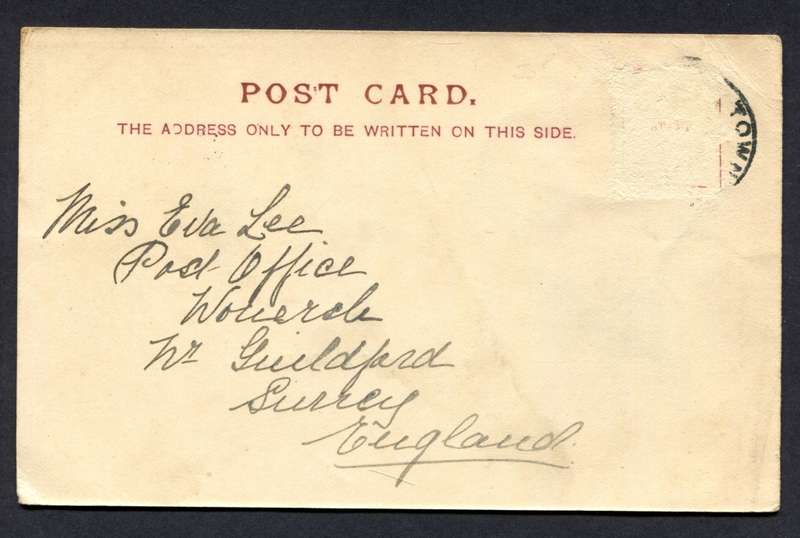 POST CARD.
THE ADDRESS ONLY TO BE WRITTEN ON THIS SIDE.
Miss Eva Lee
Post Office
Wonersh
Nr Guildford
Surrey
England